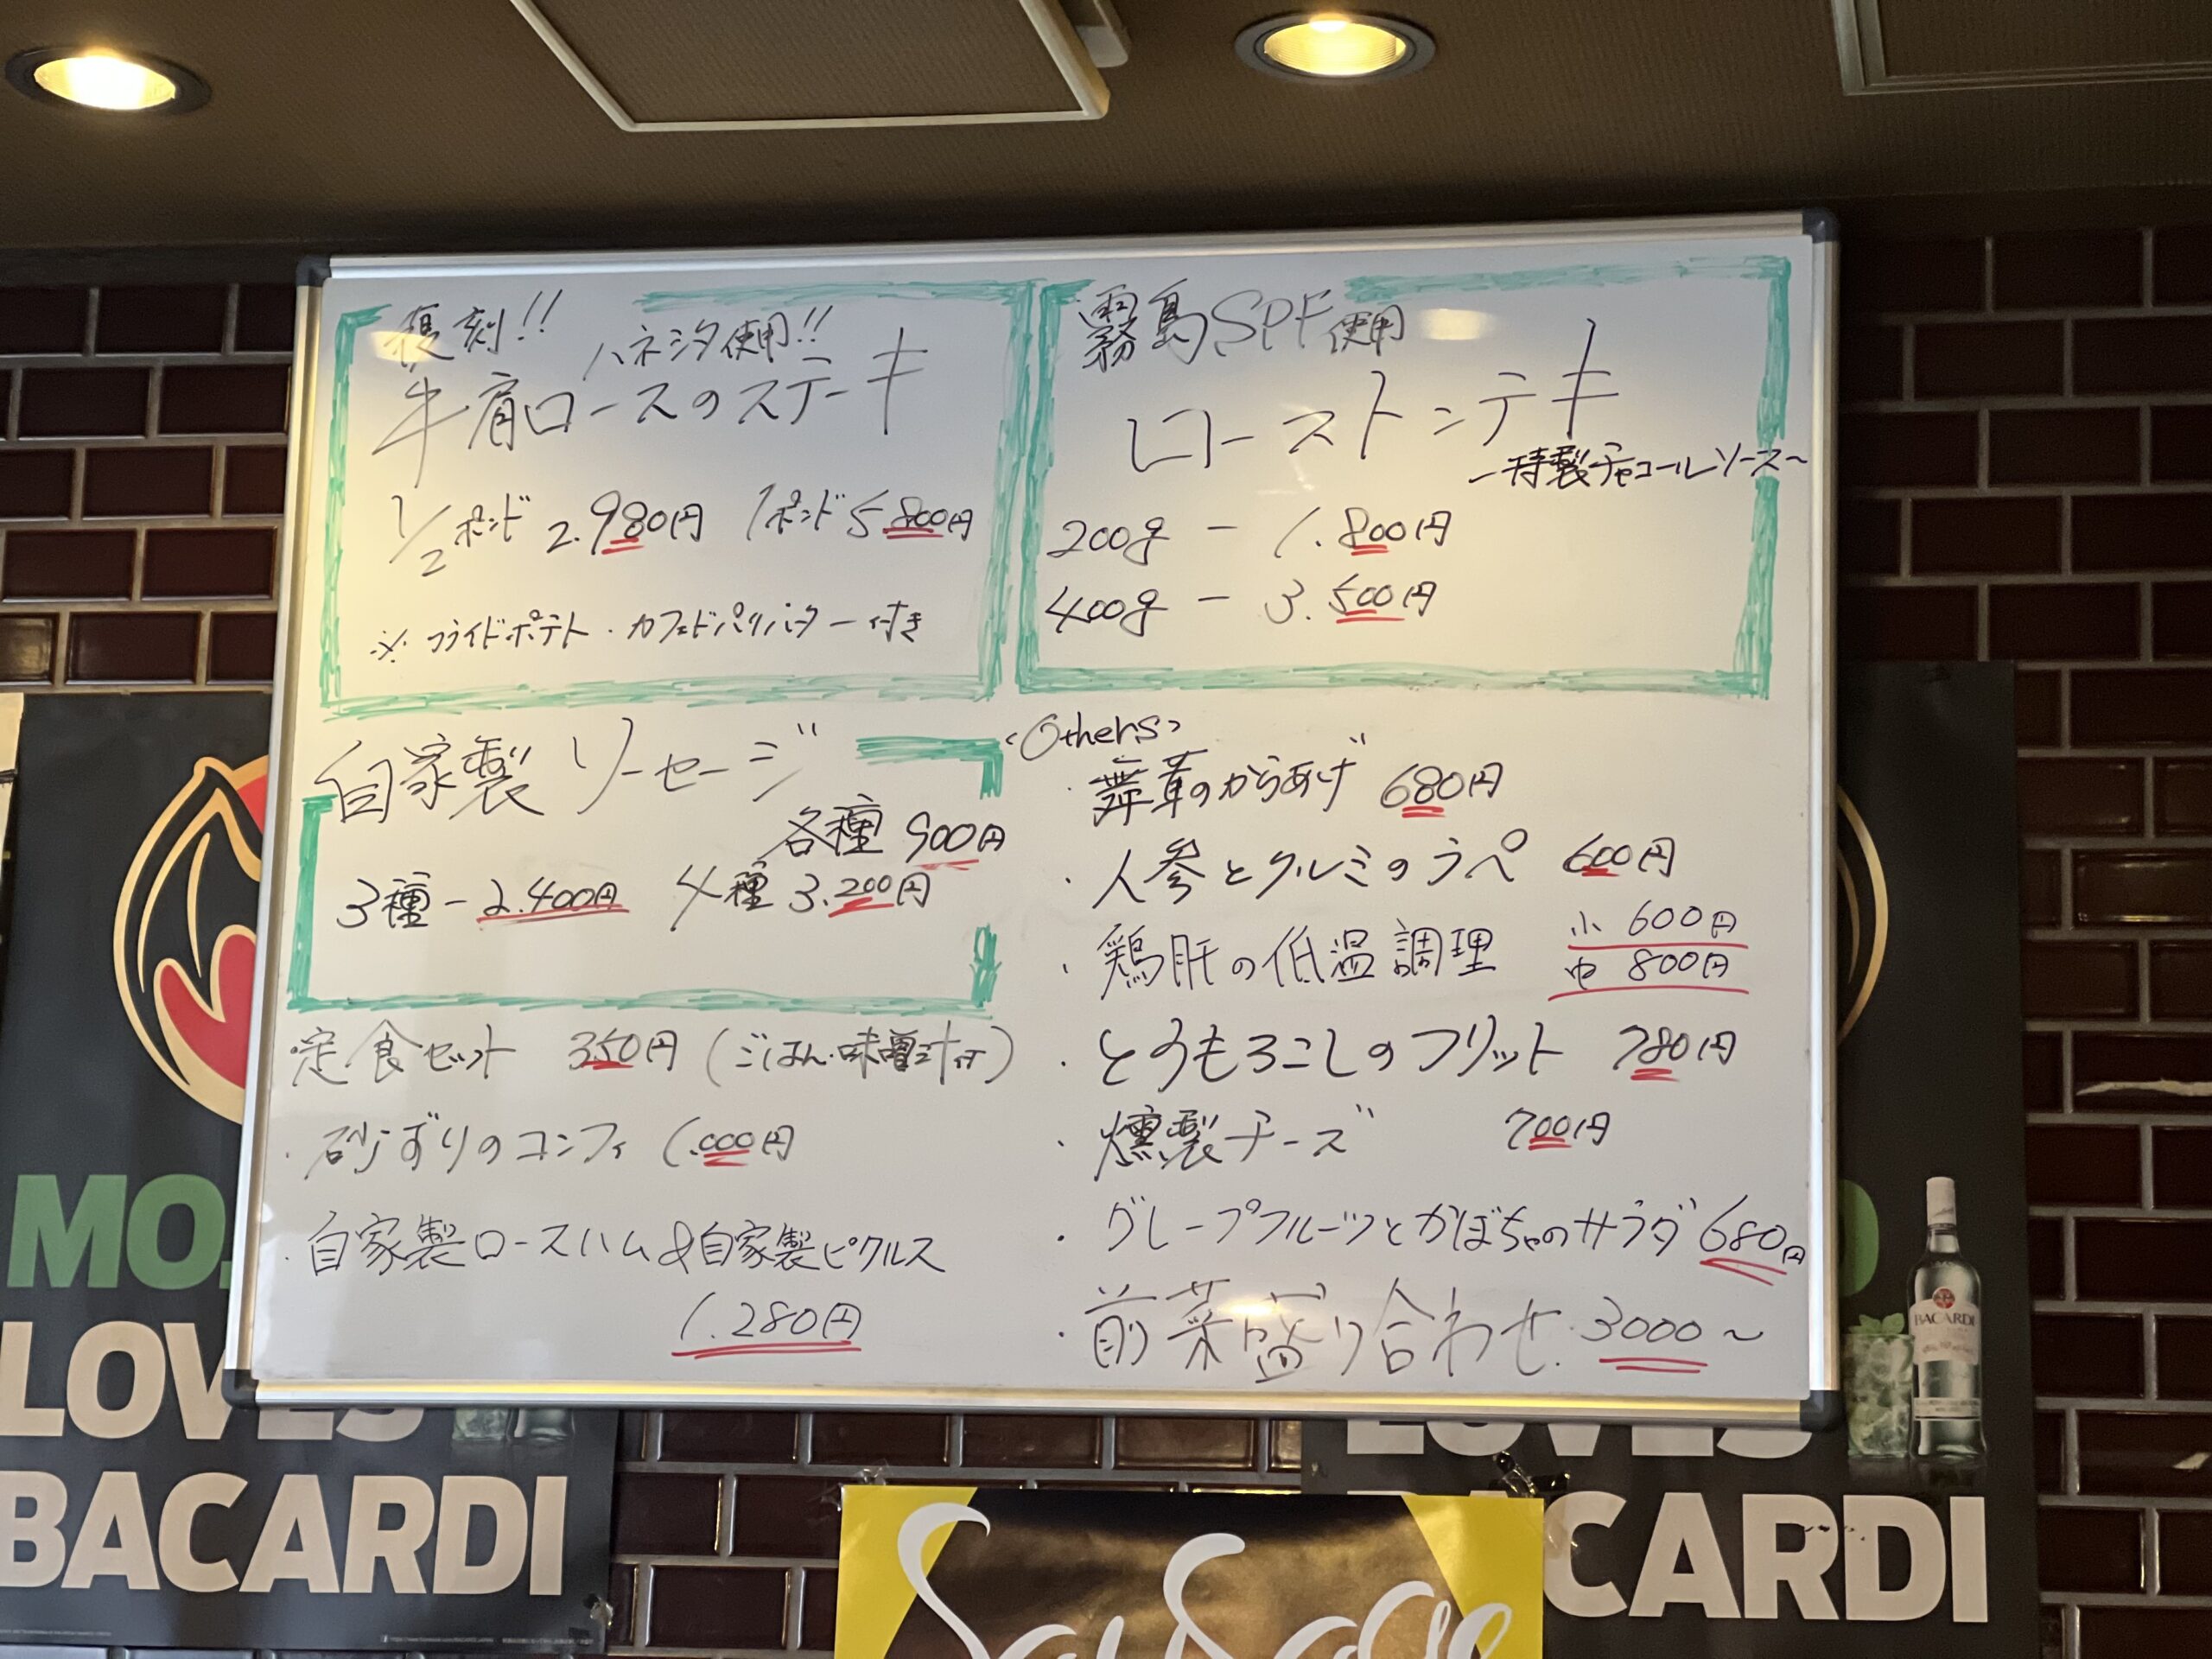 復刻!!
ハネシタ使用!!
牛肩ロースのステーキ
1/2ポンド 2.980円 1ポンド5800円
※フライドポテト・カフェドパリバター付き
霧島SPF使用
ローストンテキ
~特製チャコールソース~
200g - 1.800円
400g - 3.500円
自家製ソーセージ
各種 900円
3種-2.400円 4種3.200円
・定食セット 350円(ごはん・味噌汁付)
・砂ずりのコンフィ 1.000円
・自家製ロースハム&自家製ピクルス
1.280円
<Others>
・舞茸のからあげ 680円
・人参とクルミのラペ 600円
・鶏肝の低温調理 小 600円
中 800円
・とうもろこしのフリット 780円
・燻製チーズ 700円
・グレープフルーツとかぼちゃのサラダ 680円
・前菜盛り合わせ 3000~
LOVES
BACARDI
BACARDI
CARDI
Sausage